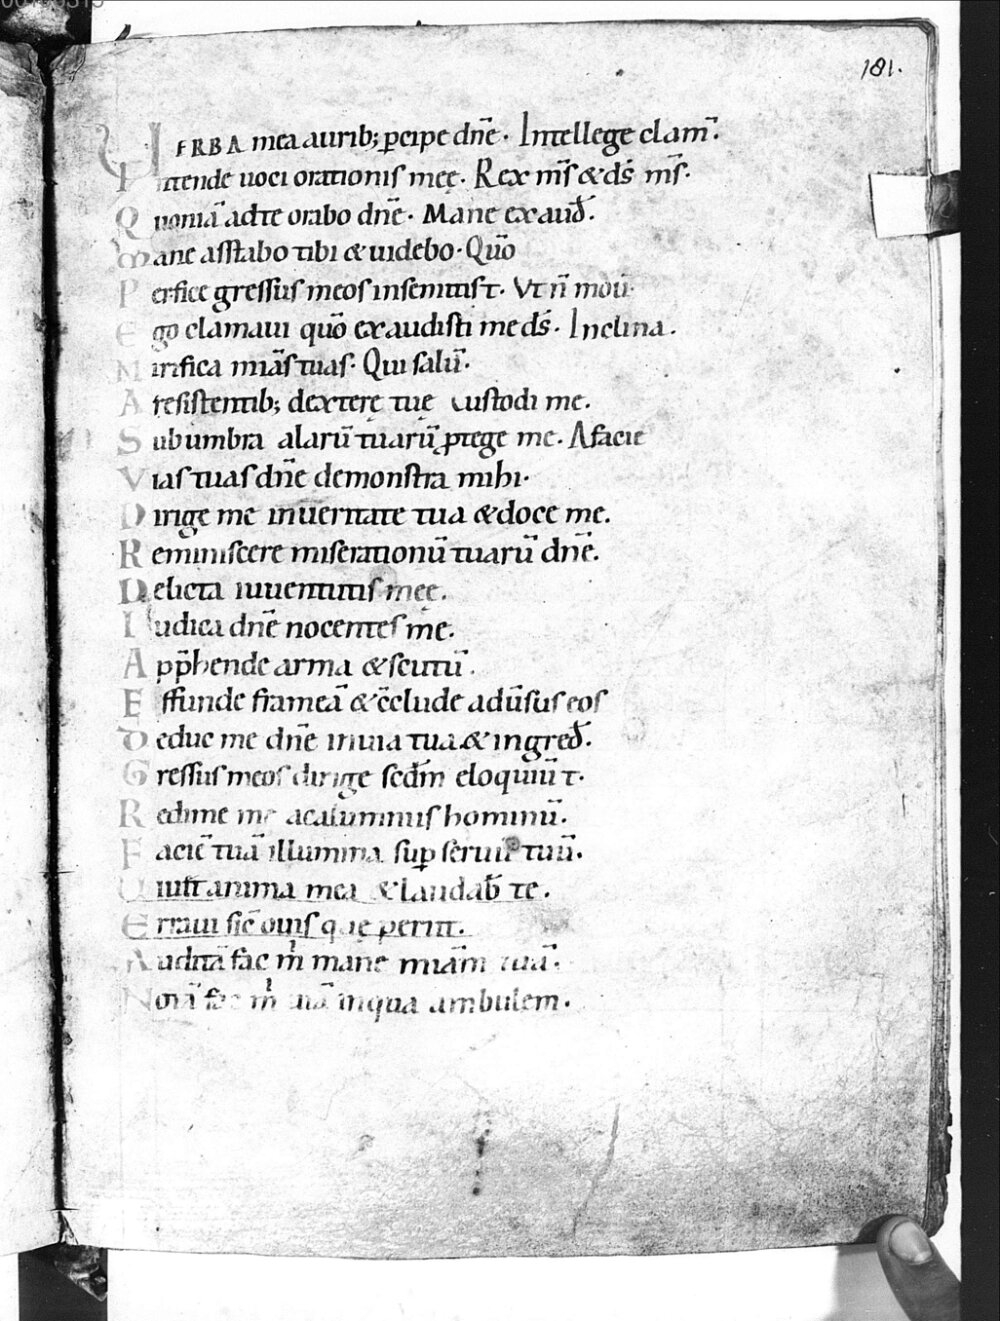 181.
VERBA mea aurib; ꝑcipe dn̄e · Intellege clam̄.
Intende uoci orationis meę · Rex m̄s & ds̄ m̄s ·
Quoniā ad te orabo dn̄e · Mane exaud̄.
Mane asstabo tibi & uidebo · Quō
Perfice gressus meos insemitis t · Vt n̄ mou̅
Ego clamaui quō exaudisti me ds̄ · Inclina .
Mirifica mīas tuas · Qui salū ·
A resistentib; dexterę tuę custodi me .
Sub umbra alarū tuarū ꝓtege me · A facie
Vias tuas dn̄e demonstra mihi ·
Dirige me in ueritate tua & doce me .
Reminiscere miserationū tuarū dn̄e .
Delicta iuuentutis meę .
Iudica dn̄e nocentes me .
App̄hende arma & scutū .
Effunde frameā & c̄clude aduſ̄us eos
Deduc me dn̄e in uia tua & ingred̄ .
Gressus meos dirige scd̄m eloquiū t ·
Redime me a calumniis hominū .
Faciē tuā illumina suꝑ seruū tuū .
Uiuit anima mea & laudab̄ te .
Erraui sic̄ ouis que periit .
Auditā fac m̄ mane mīam tuā ·
Notā fac m̄ uiā in qua ambulem ·